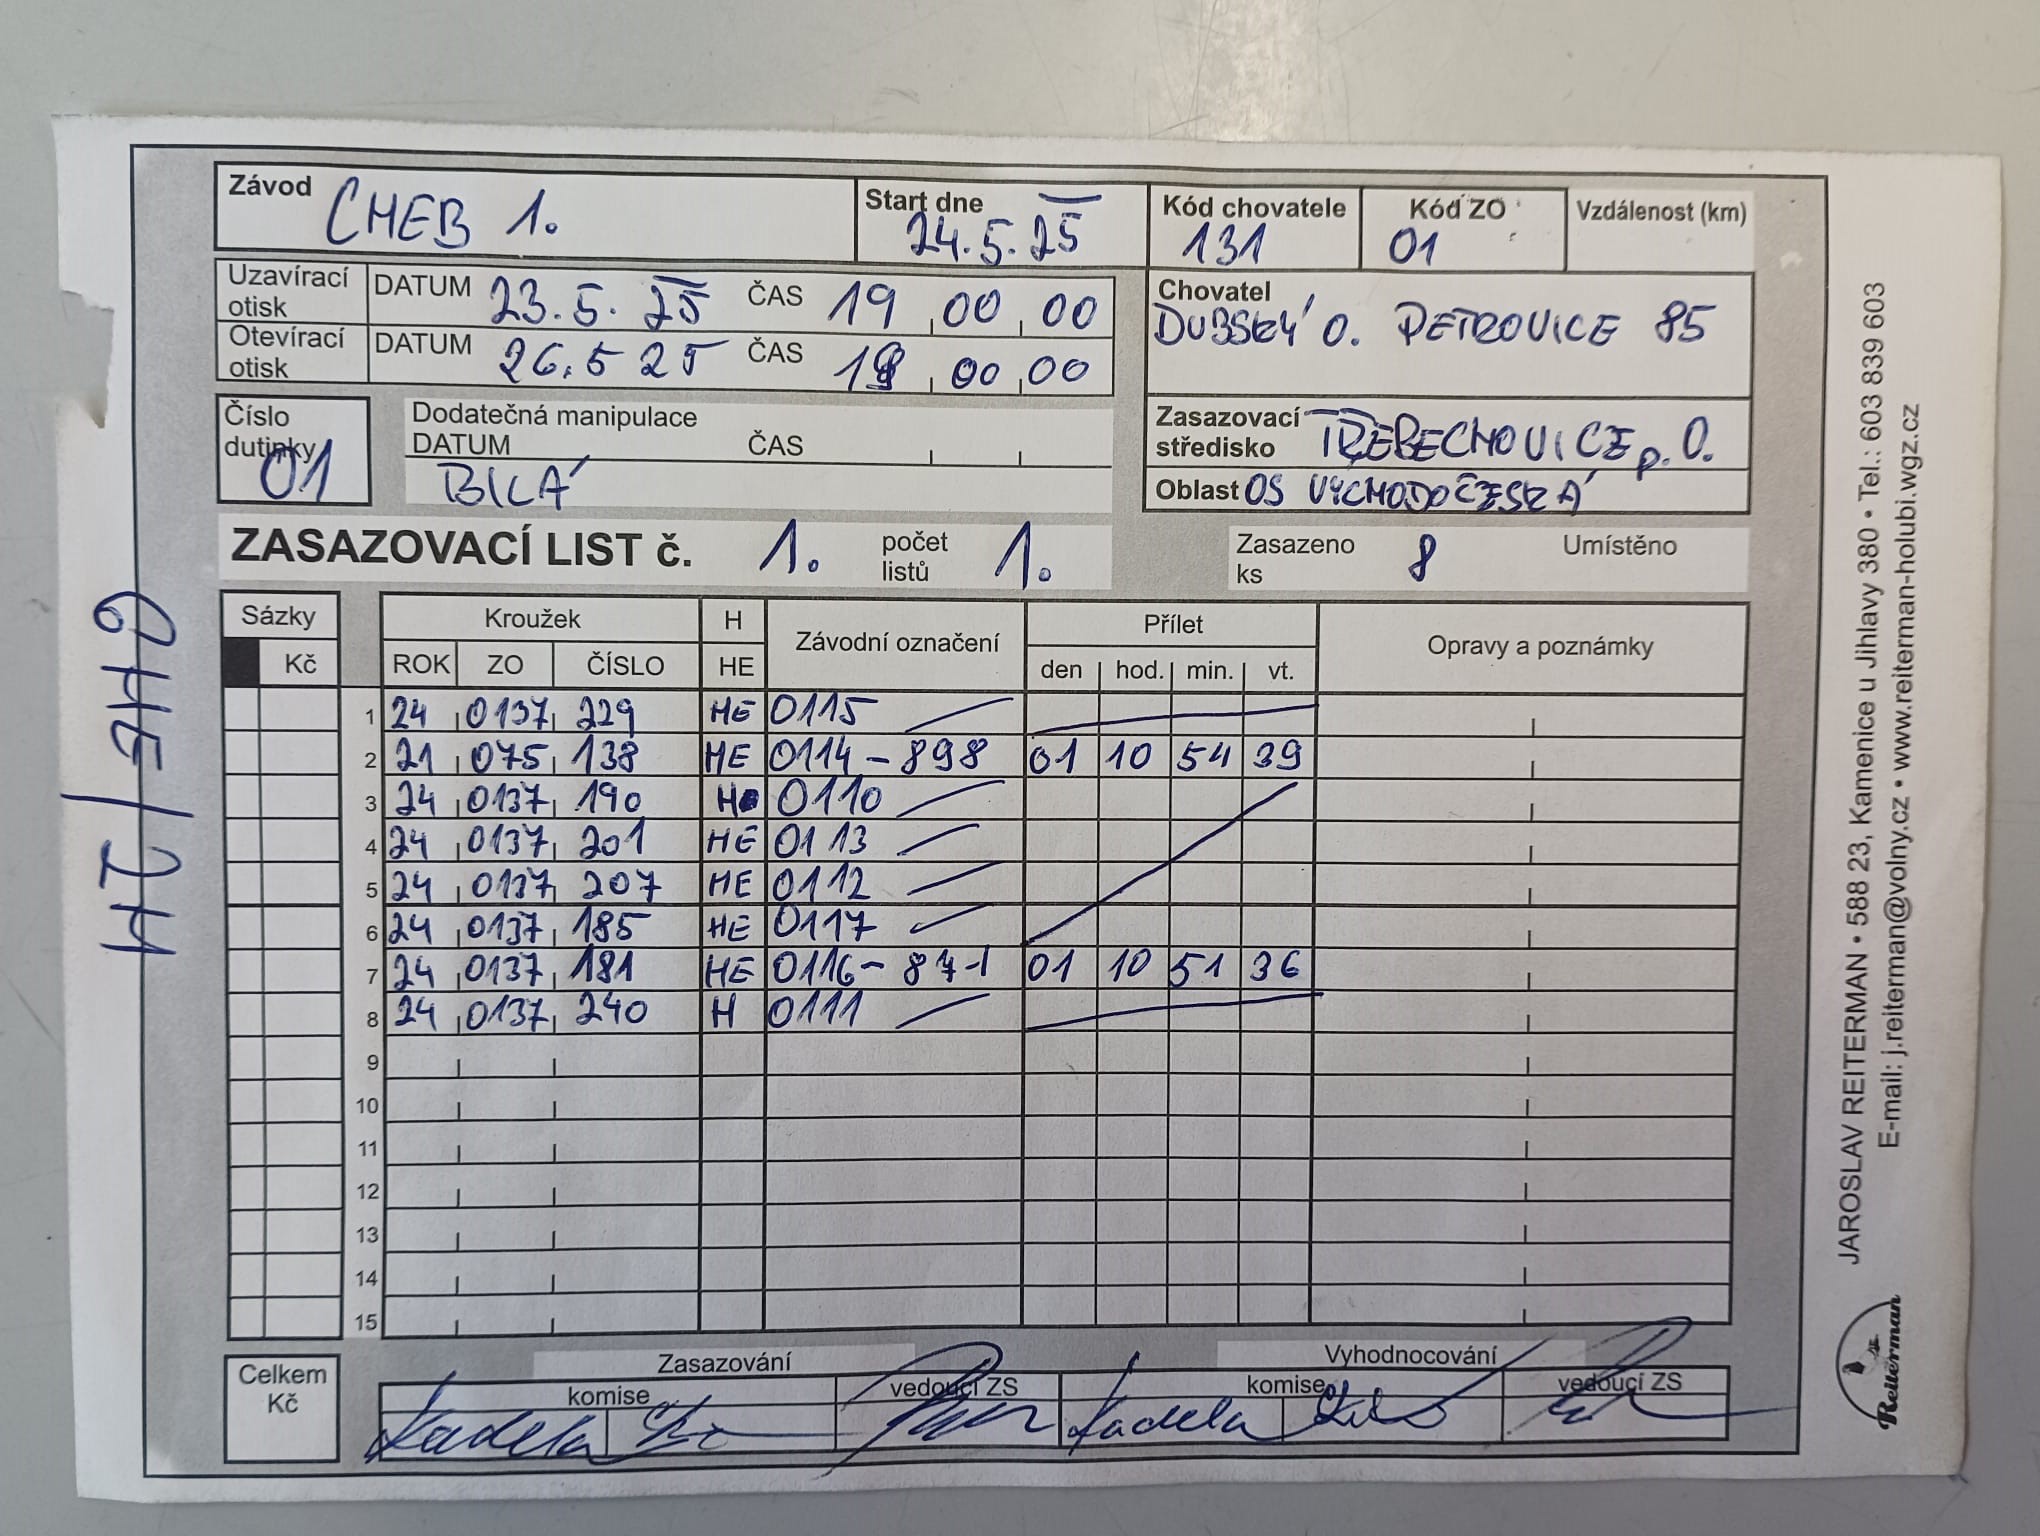 Závod CHEB 1. Start dne 24.5.25 Kód chovatele 131 Kód ZO 01 Vzdálenost (km)
Uzavírací otisk DATUM 23.5.25 ČAS 19 00 00
Otevírací otisk DATUM 26.5 25 ČAS 00 00
Chovatel
DUBSKÝ O. PETROVICE 85
Číslo dutinky 01
Dodatečná manipulace
DATUM ČAS
BILÁ
Zasazovací středisko TŘEBECHOVICE p. O.
Oblast OS VÝCHODOČESKÁ
ZASAZOVACÍ LIST č. 1. počet listů 1. Zasazeno ks 8 Umístěno
Sázky Kroužek H Závodní označení Přílet Opravy a poznámky
Kč ROK ZO ČÍSLO HE den hod. min. vt.
1 24 0137 229 HE 0115
2 21 075 138 HE 0114 - 898 01 10 54 39
3 24 0137 190 H 0110
4 24 0137 201 HE 0113
5 24 0137 207 HE 0112
6 24 0137 185 HE 0117
7 24 0137 181 HE 0116 - 871 01 10 51 36
8 24 0137 240 H 0111
9
10
11
12
13
14
15
Celkem Kč
Zasazování Vyhodnocování
komise vedoucí ZS komise vedoucí ZS
Kadela Kadela
JAROSLAV REITERMAN • 588 23, Kamenice u Jihlavy 380 • Tel.: 603 839 603
E-mail: j.reiterman@volny.cz • www.reiterman-holubi.wgz.cz
Reiterman